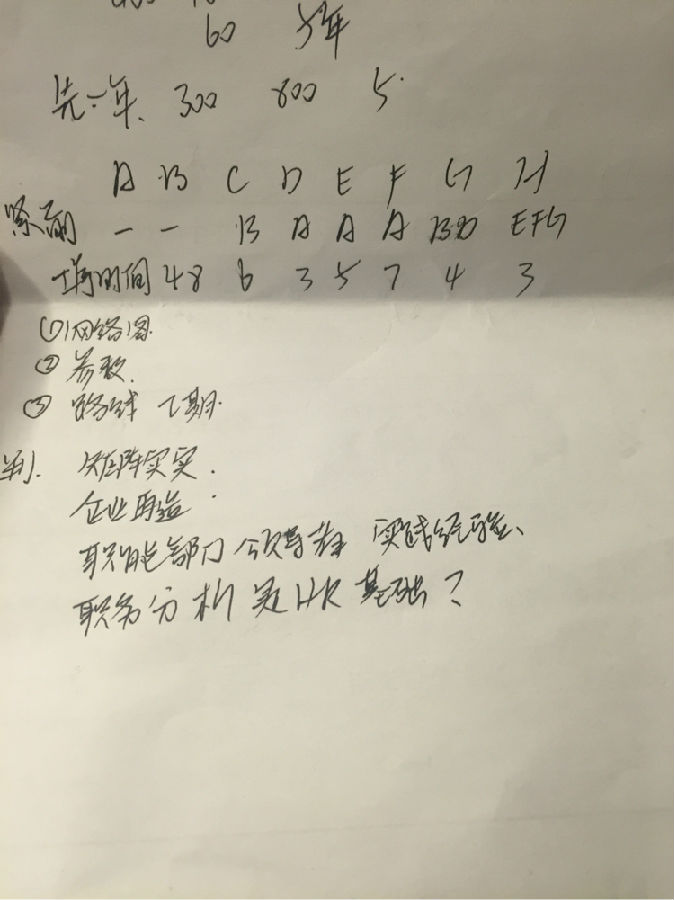 60 5年
先一年、 300 800 5
A B C D E F G H
紧前 — — B A A A BD EFG
工序时间 4 8 6 3 5 7 4 3
①网络图
② 参数
③ 路线 工期
判. 矩阵实实.
企业再造
职能部门 领导者 实践经验、
职务分析是HR基础?